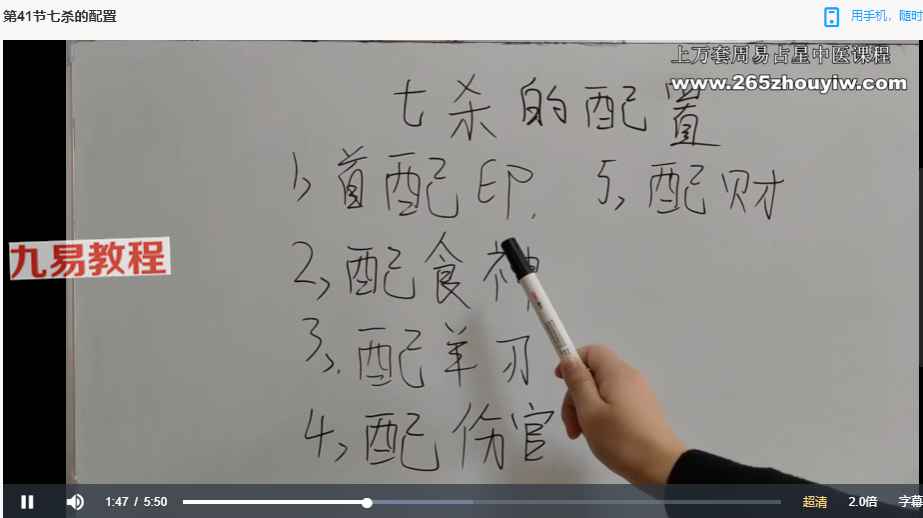 第41节七杀的配置
用手机，随时
上万套周易占星中医课程
www.265zhouyiw.com
七杀的配置
1、首配印、 5、配财
九易教程
2、配食神
3、配羊刃
4、配伤官
1:47 / 5:50 超清 2.0倍 字幕